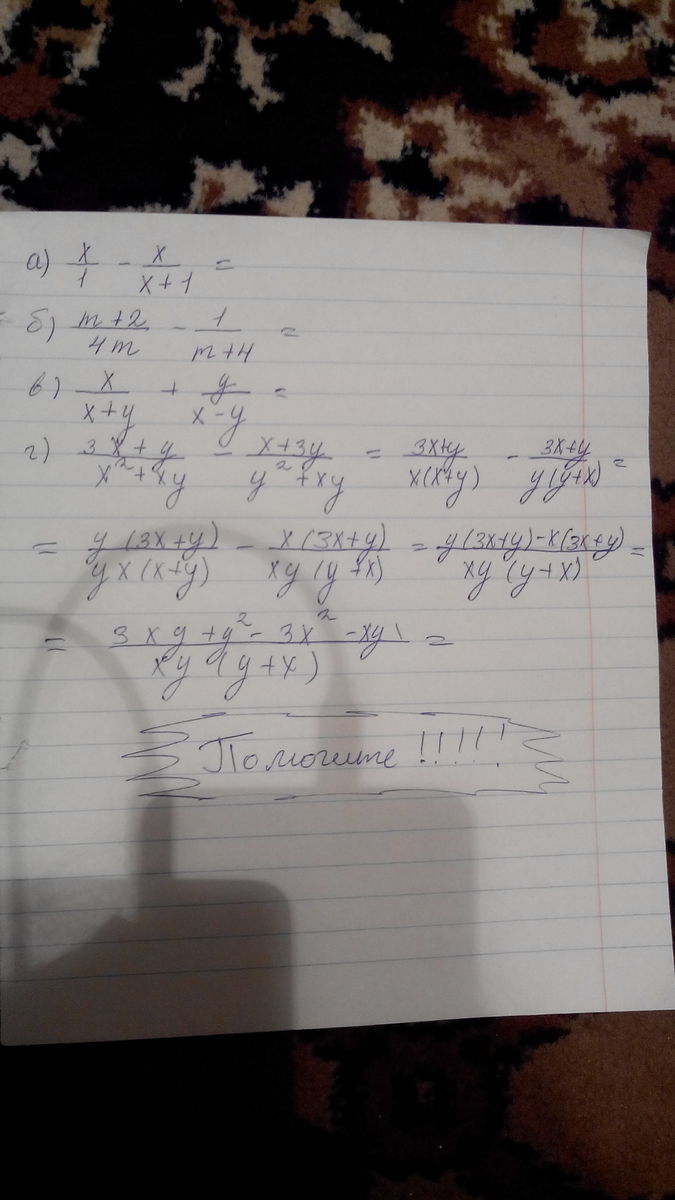 а) x/1 - x/(x+1) =
б) (m+2)/4m - 1/(m+4) =
в) x/(x+y) + y/(x-y) =
г) (3x+y)/(x²+xy) - (x+3y)/(y²+xy) = (3x+y)/(x(x+y)) - (3x+y)/(y(y+x)) =
= y(3x+y)/(yx(x+y)) - x(3x+y)/(xy(y+x)) = (y(3x+y)-x(3x+y))/(xy(y+x)) =
= (3xy+y²-3x²-xy)/(xy(y+x)) =
Помогите !!!!!